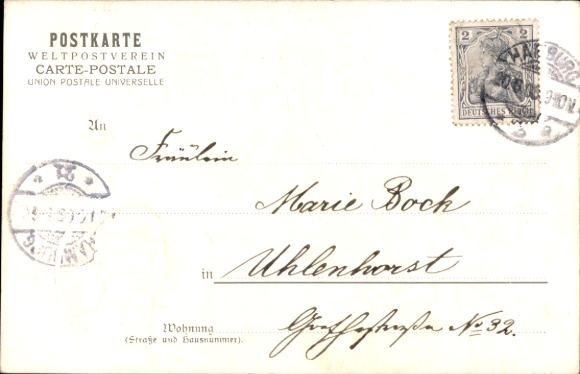 POSTKARTE
WELTPOSTVEREIN
CARTE-POSTALE
UNION POSTALE UNIVERSELLE
2 2
DEUTSCHES REICH
HAMBURG
9-10V.
An
Fräulein
Marie Bock
in Uhlenhorst
Wohnung
(Straße und Hausnummer).
Goethestraße No 32.
HAMBURG
21